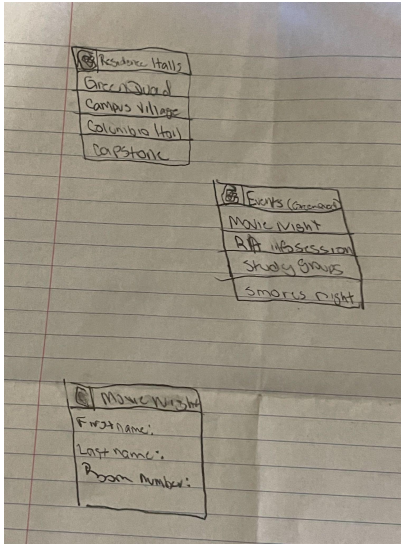 Residence Halls
Green Quad
Campus Village
Columbia Hall
Capstone
Events (Greenquad)
Movie Night
RA infosession
Study Groups
Smores night
Movie Night
First name:
Last name:
Room Number: